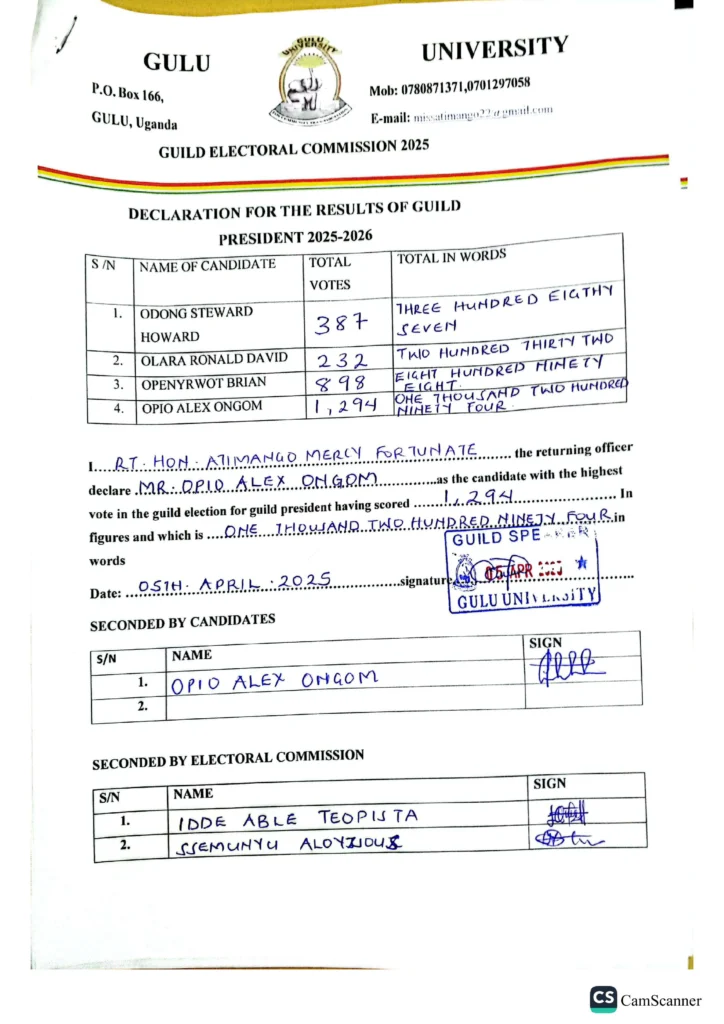 GULU UNIVERSITY
GULU UNIVERSITY
P.O. Box 166,
GULU, Uganda
Mob: 0780871371,0701297058
E-mail: missatimango22@gmail.com
GUILD ELECTORAL COMMISSION 2025
DECLARATION FOR THE RESULTS OF GUILD
PRESIDENT 2025-2026
S/N NAME OF CANDIDATE TOTAL VOTES TOTAL IN WORDS
1. ODONG STEWARD HOWARD 387 THREE HUNDRED EIGTHY SEVEN
2. OLARA RONALD DAVID 232 TWO HUNDRED THIRTY TWO
3. OPENYRWOT BRIAN 898 EIGHT HUNDRED NINETY EIGHT.
4. OPIO ALEX ONGOM 1,294 ONE THOUSAND TWO HUNDRED NINETY FOUR.
I....RT. HON. ATIMANGO MERCY FORTUNATE......... the returning officer
declare .MR. OPIO ALEX ONGOM..............as the candidate with the highest
vote in the guild election for guild president having scored ......1,294.................... In
figures and which is ....ONE THOUSAND TWO HUNDRED NINETY FOUR.in
words
Date: ...05TH. APRIL.:2025...................signature
GUILD SPEAKER
05 APR 2025
GULU UNIVERSITY
SECONDED BY CANDIDATES
S/N NAME SIGN
1. OPIO ALEX ONGOM
2.
SECONDED BY ELECTORAL COMMISSION
S/N NAME SIGN
1. IDDE ABLE TEOPISTA
2. SSEMUNYU ALOYZIOUS
CS CamScanner